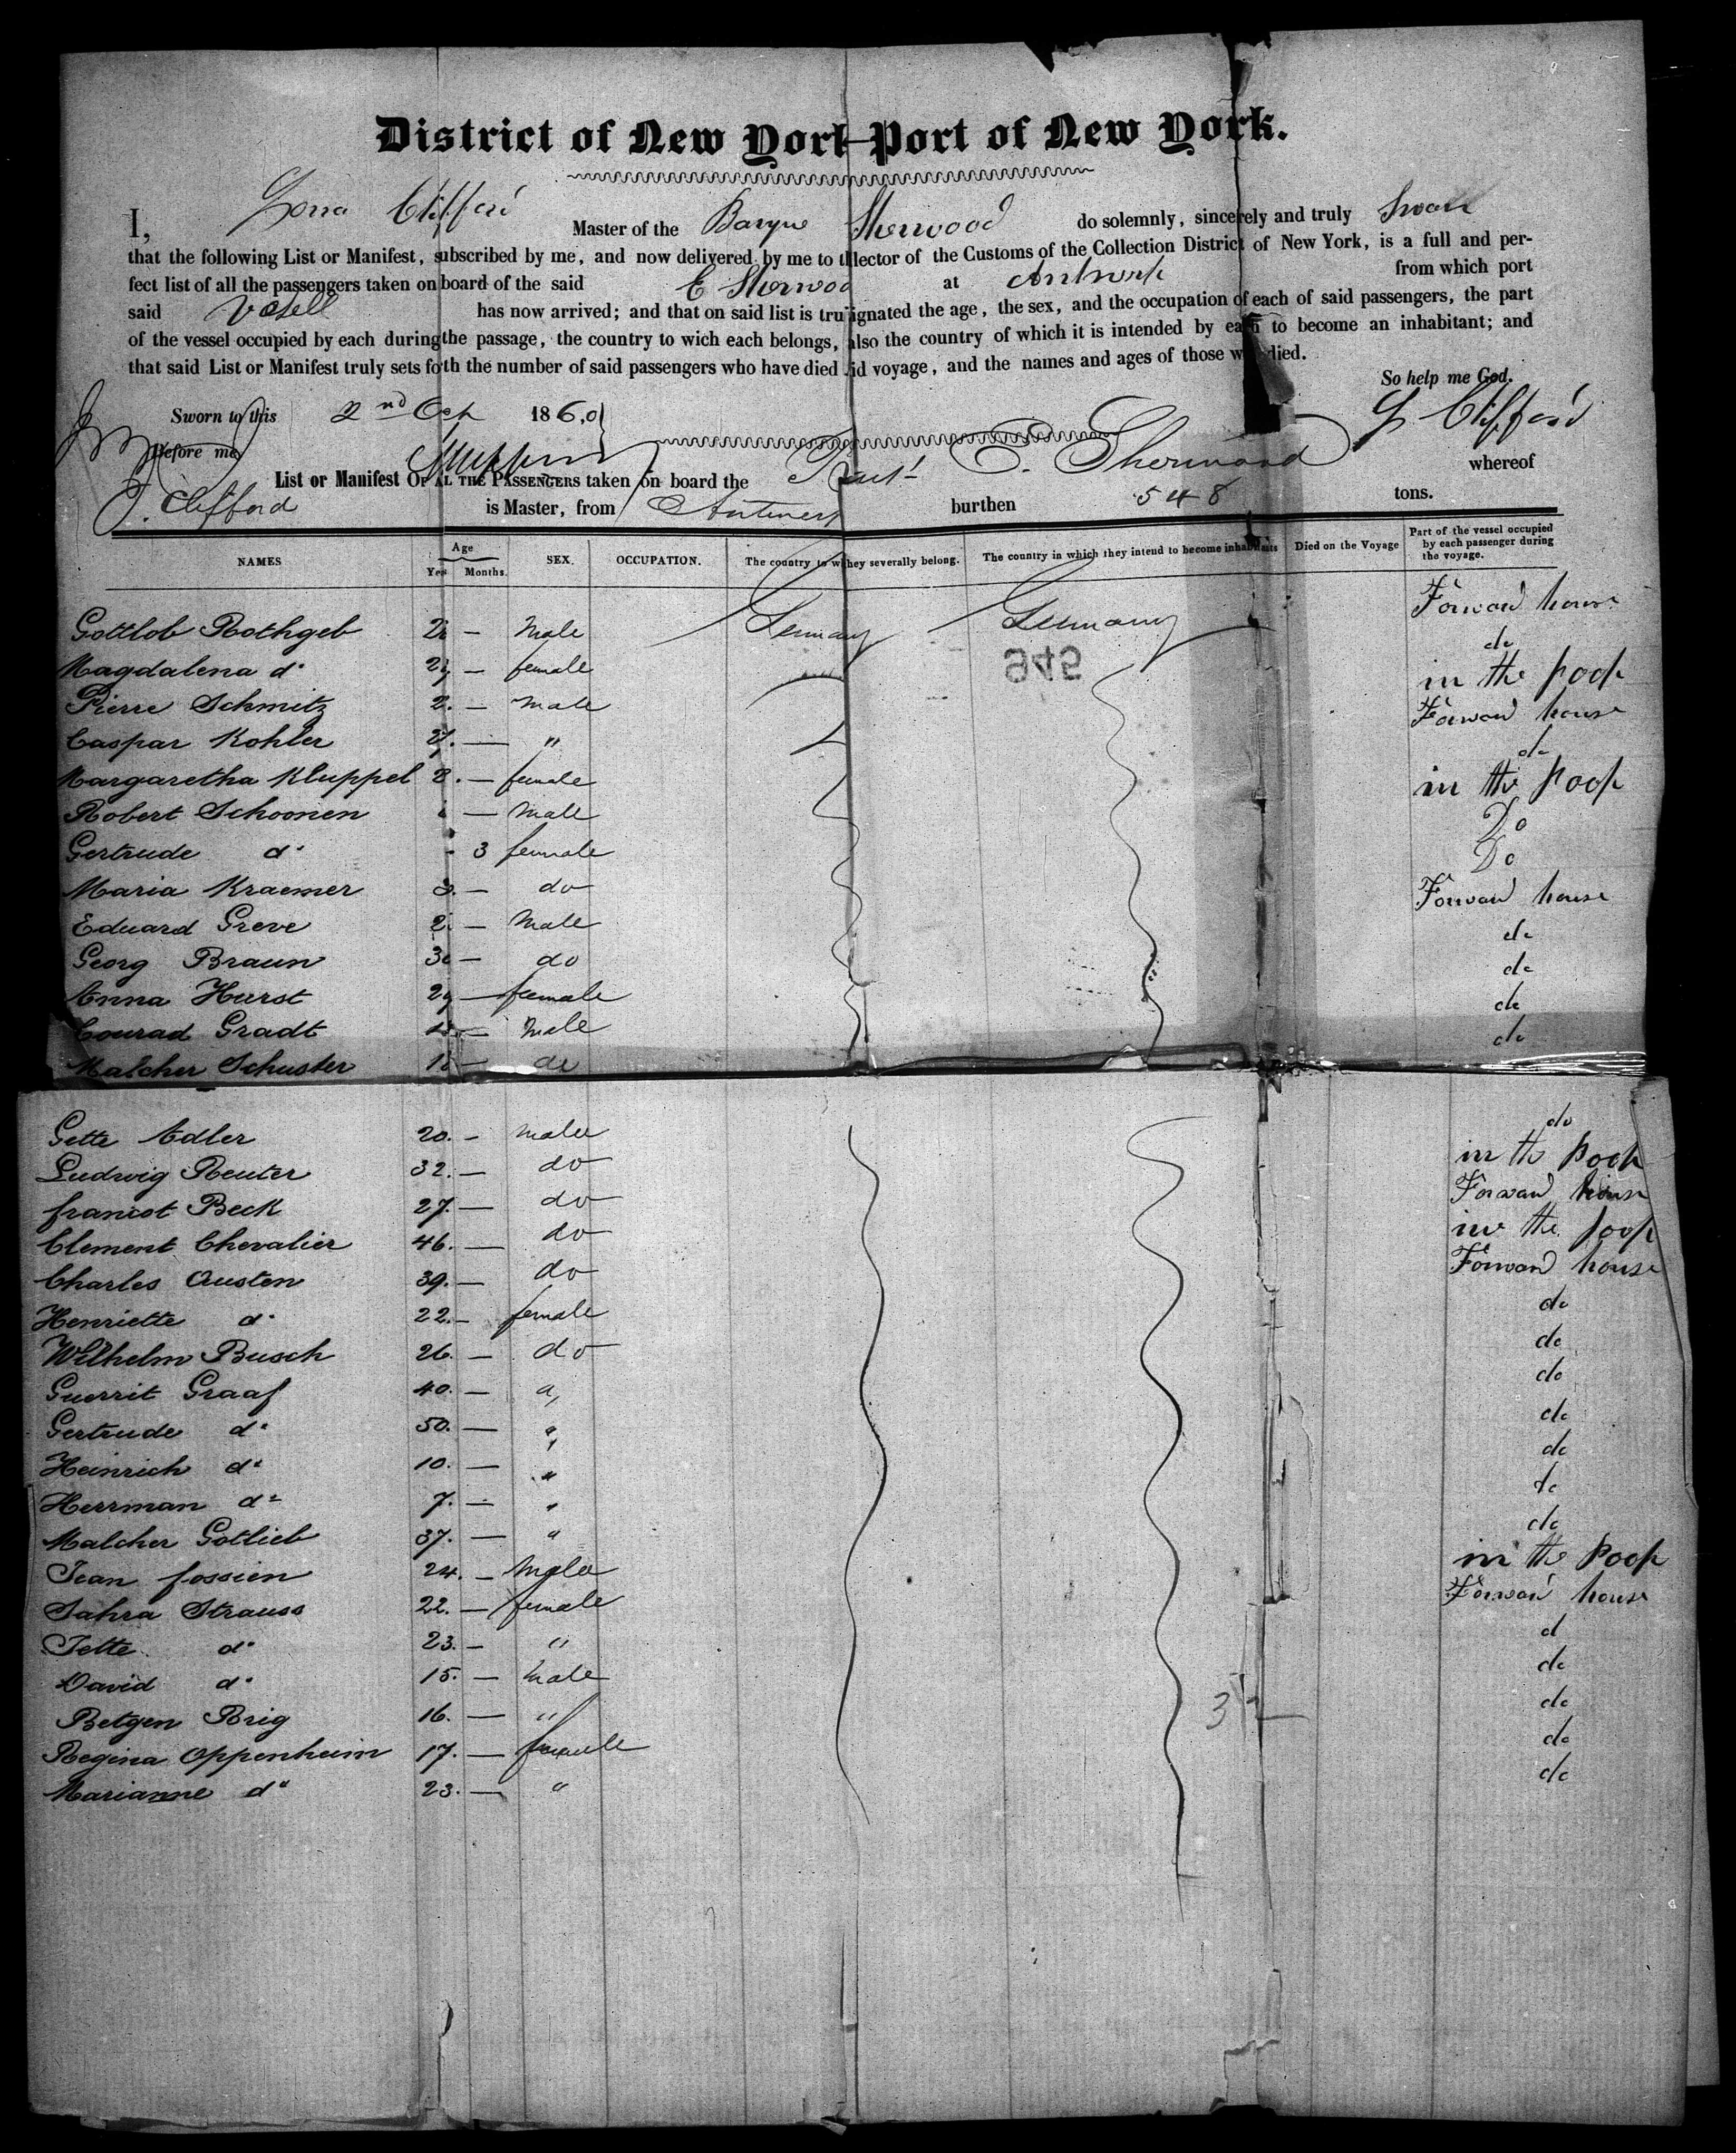 District of New York Port of New York.
I, Clifford Master of the Barque Sherwood do solemnly, sincerely and truly Swear
that the following List or Manifest, subscribed by me, and now delivered by me to th llector of the Customs of the Collection District of New York, is a full and per-
fect list of all the passengers taken on board of the said E Sherwood at Antwerp from which port
said Vessell has now arrived; and that on said list is tru ignated the age, the sex, and the occupation of each of said passengers, the part
of the vessel occupied by each during the passage, the country to wich each belongs, also the country of which it is intended by each to become an inhabitant; and
that said List or Manifest truly sets forth the number of said passengers who have died id voyage, and the names and ages of those w died.
So help me God.
Sworn to this 2nd Oct 1860 J Clifford
Before me
List or Manifest OF AL THE PASSENGERS taken on board the E. Sherwood whereof
J. Clifford is Master, from Antwerp burthen 548 tons.
NAMES Age Years Months. SEX. OCCUPATION. The country to w hey severally belong. The country in which they intend to become inhabitants Died on the Voyage Part of the vessel occupied by each passenger during the voyage.
Gottlob Rothgeb — Male Germany Germany Forward house
Magdalena do — female do
945
Pierre Schmitz — Male in the poop
Caspar Kohler — " Forward house
Margaretha Kluppel — female do
Robert Schoonen — Male in the poop
Gertrude do - 3 female Do
Maria Kraemer — do Do
Eduard Greve — Male Forward house
Georg Braun — do do
Anna Hurst 29 — female do
Conrad Gradt — Male do
Malcher Schuster — do do
Gette Adler 20. — male do
Ludwig Reuter 32. — do in the poop
francot Beck 27. — do Forward house
Clement Chevalier 46. — do in the poop
Charles Austen 39. — do Forward house
Henriette do 22. — female do
Wilhelm Busch 26. — do do
Guerrit Graaf 40. — " do
Gertrude do 50. — " do
Heinrich do 10. — " do
Herrman do 7. — " do
Malcher Gotlieb 37. — " do
Jean fossien 24. — Male in the poop
Sahra Strauss 22. — female Forward house
Jette do 23. — " d
David do 15. — Male do
Betgen Brig 16. — " do
Regina Oppenheim 17. — female do
Marianne do 23. — " do